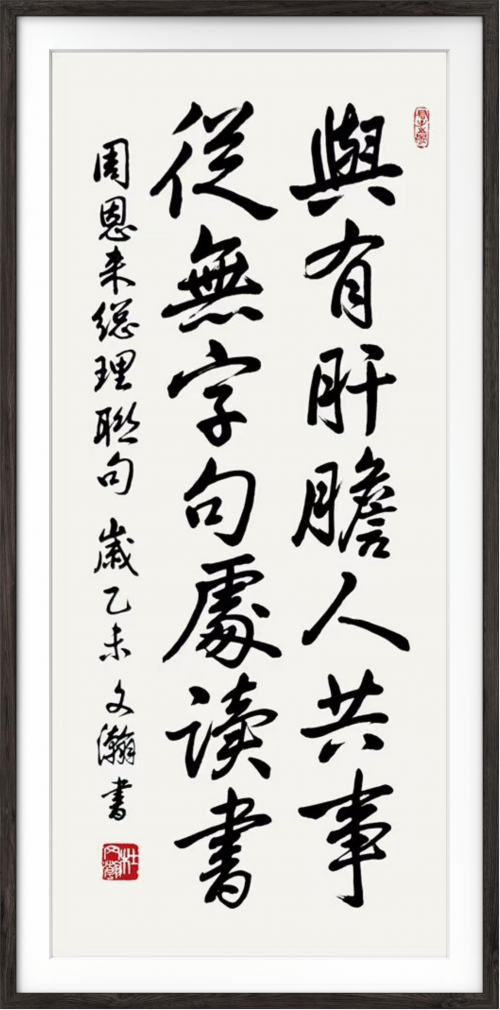 與有肝膽人共事
從無字句處读书
周恩来總理聯句 歲乙未 文瀚书
杜文瀚